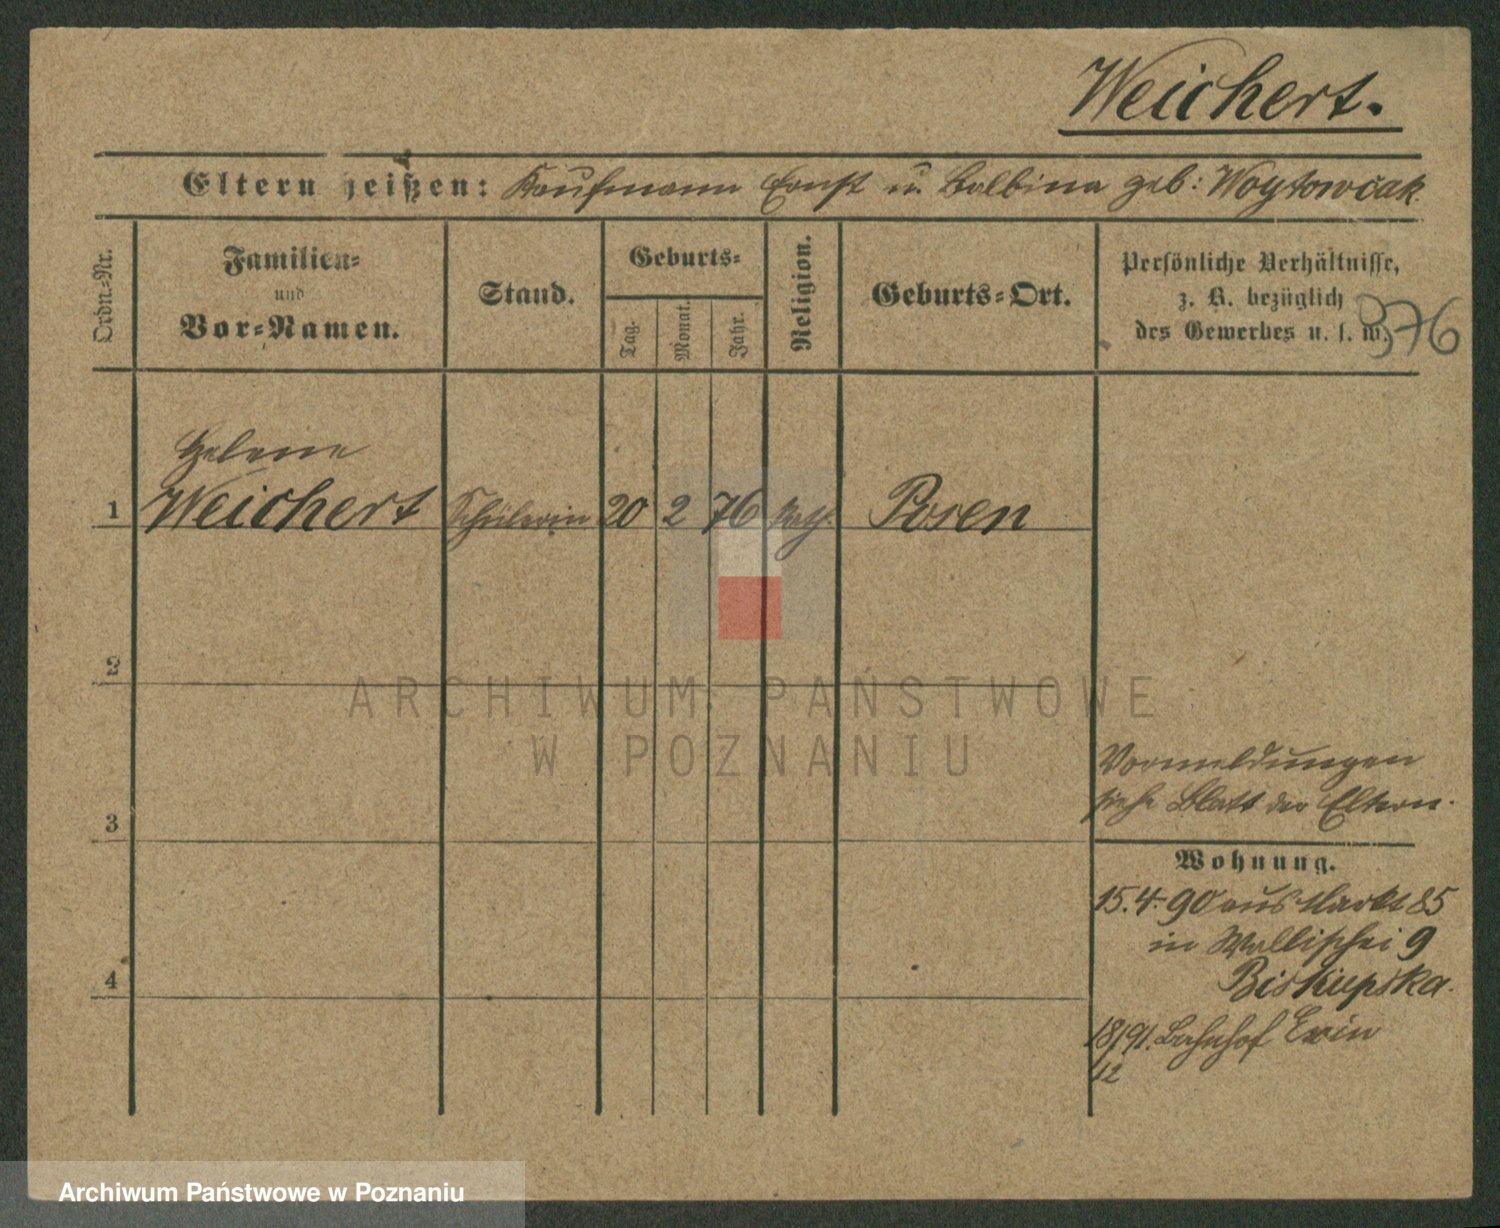 Weichert.
Eltern heißen: Kaufmann Ernst u. Balbina geb: Woytowčak.
Ordn.-Nr.
Familien-
und
Vor-Namen.
Stand.
Geburts-
Tag.
Monat.
Jahr.
Religion.
Geburts-Ort.
Persönliche Verhältnisse,
z. B. bezüglich
des Gewerbes u. s. w.
376
Helene
1 Weichert Schülerin 20 2 76 kath. Posen
2
ARCHIWUM PAŃSTWOWE
W POZNANIU
Vormeldungen
siehe Blatt der Eltern.
3
Wohnung.
15.4.90 aus Markt 85
in Wallischei 9
Biskupska.
4
18/91. Bahnhof Exin
12
Archiwum Państwowe w Poznaniu